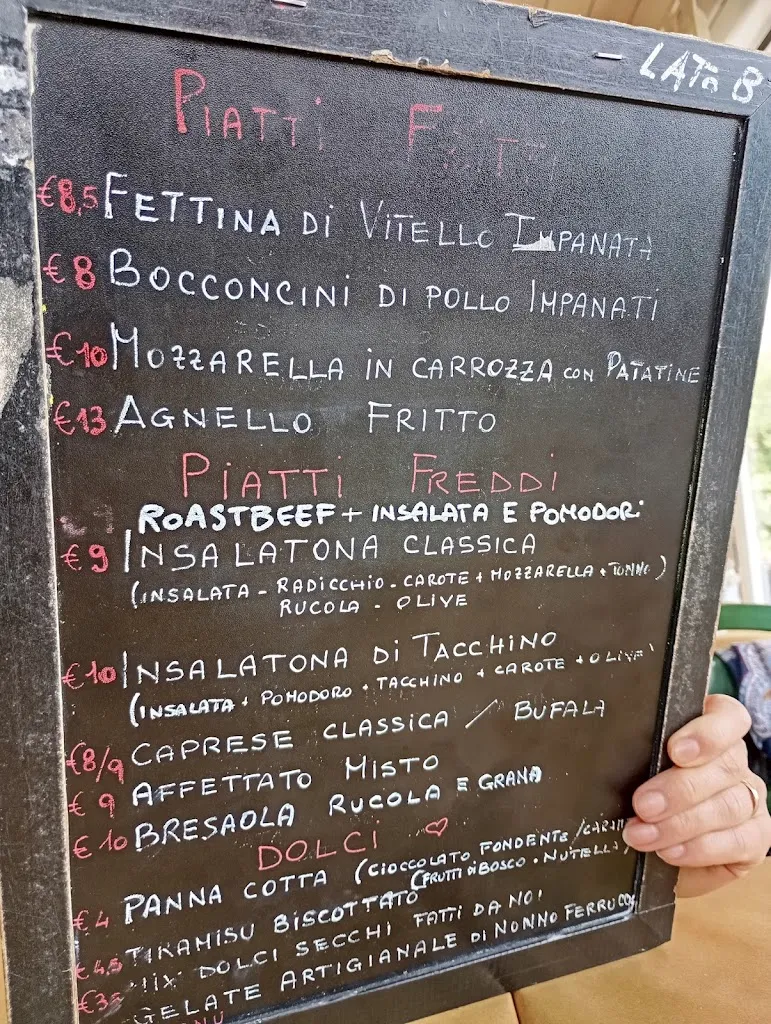 LATO B
PIATTI FRITTI
€8,5 FETTINA DI VITELLO IMPANATA
€8 BOCCONCINI DI POLLO IMPANATI
€10 MOZZARELLA IN CARROZZA CON PATATINE
€13 AGNELLO FRITTO
PIATTI FREDDI
ROASTBEEF + INSALATA E POMODORI
€9 INSALATONA CLASSICA
(INSALATA - RADICCHIO - CAROTE + MOZZARELLA + TONNO)
RUCOLA - OLIVE
€10 INSALATONA DI TACCHINO
(INSALATA + POMODORO + TACCHINO + CAROTE + OLIVE)
€8/9 CAPRESE CLASSICA / BUFALA
€9 AFFETTATO MISTO
€10 BRESAOLA RUCOLA E GRANA
DOLCI ♡
€4 PANNA COTTA (CIOCCOLATO FONDENTE /
(FRUTTI DI BOSCO - NUTELLA)
€4,5 TIRAMISU BISCOTTATO
MIX DOLCI SECCHI FATTI DA NOI
GELATE ARTIGIANALE DI NONNO FERRUCCIO